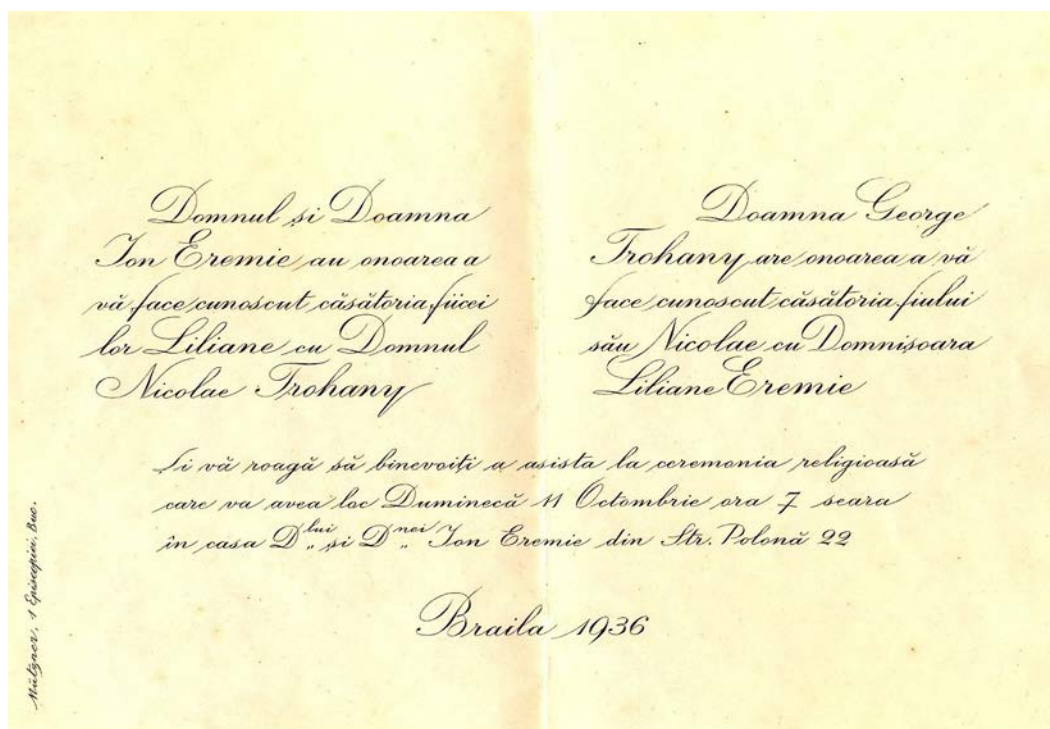 Domnul și Doamna
Ion Eremie au onoarea a
vă face cunoscut căsătoria fiicei
lor Liliane cu Domnul
Nicolae Trohany
Doamna George
Trohany are onoarea a vă
face cunoscut căsătoria fiului
său Nicolae cu Domnișoara
Liliane Eremie
Și vă roagă să binevoiți a asista la ceremonia religioasă
care va avea loc Duminecă 11 Octombrie ora 7 seara
în casa D„lui și D„nei Ion Eremie din Str. Polonă 22
Braila 1936
Mützner, 1 Episcopiei, Buc.